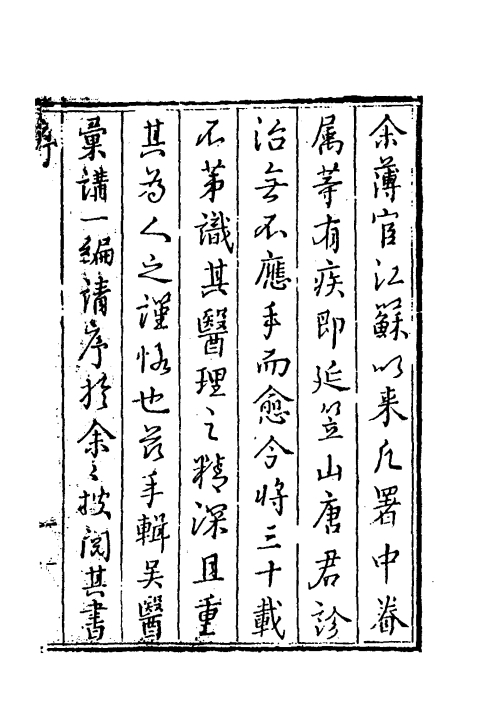 余薄官江蘇以來凡署中眷
属等有疾即延笠山唐君診
治無不應手而愈今將三十載
不第識其醫理之精深且重
其為人之謹恪也茲手輯吳醫
彙講一編請序於余々披閱其書
序